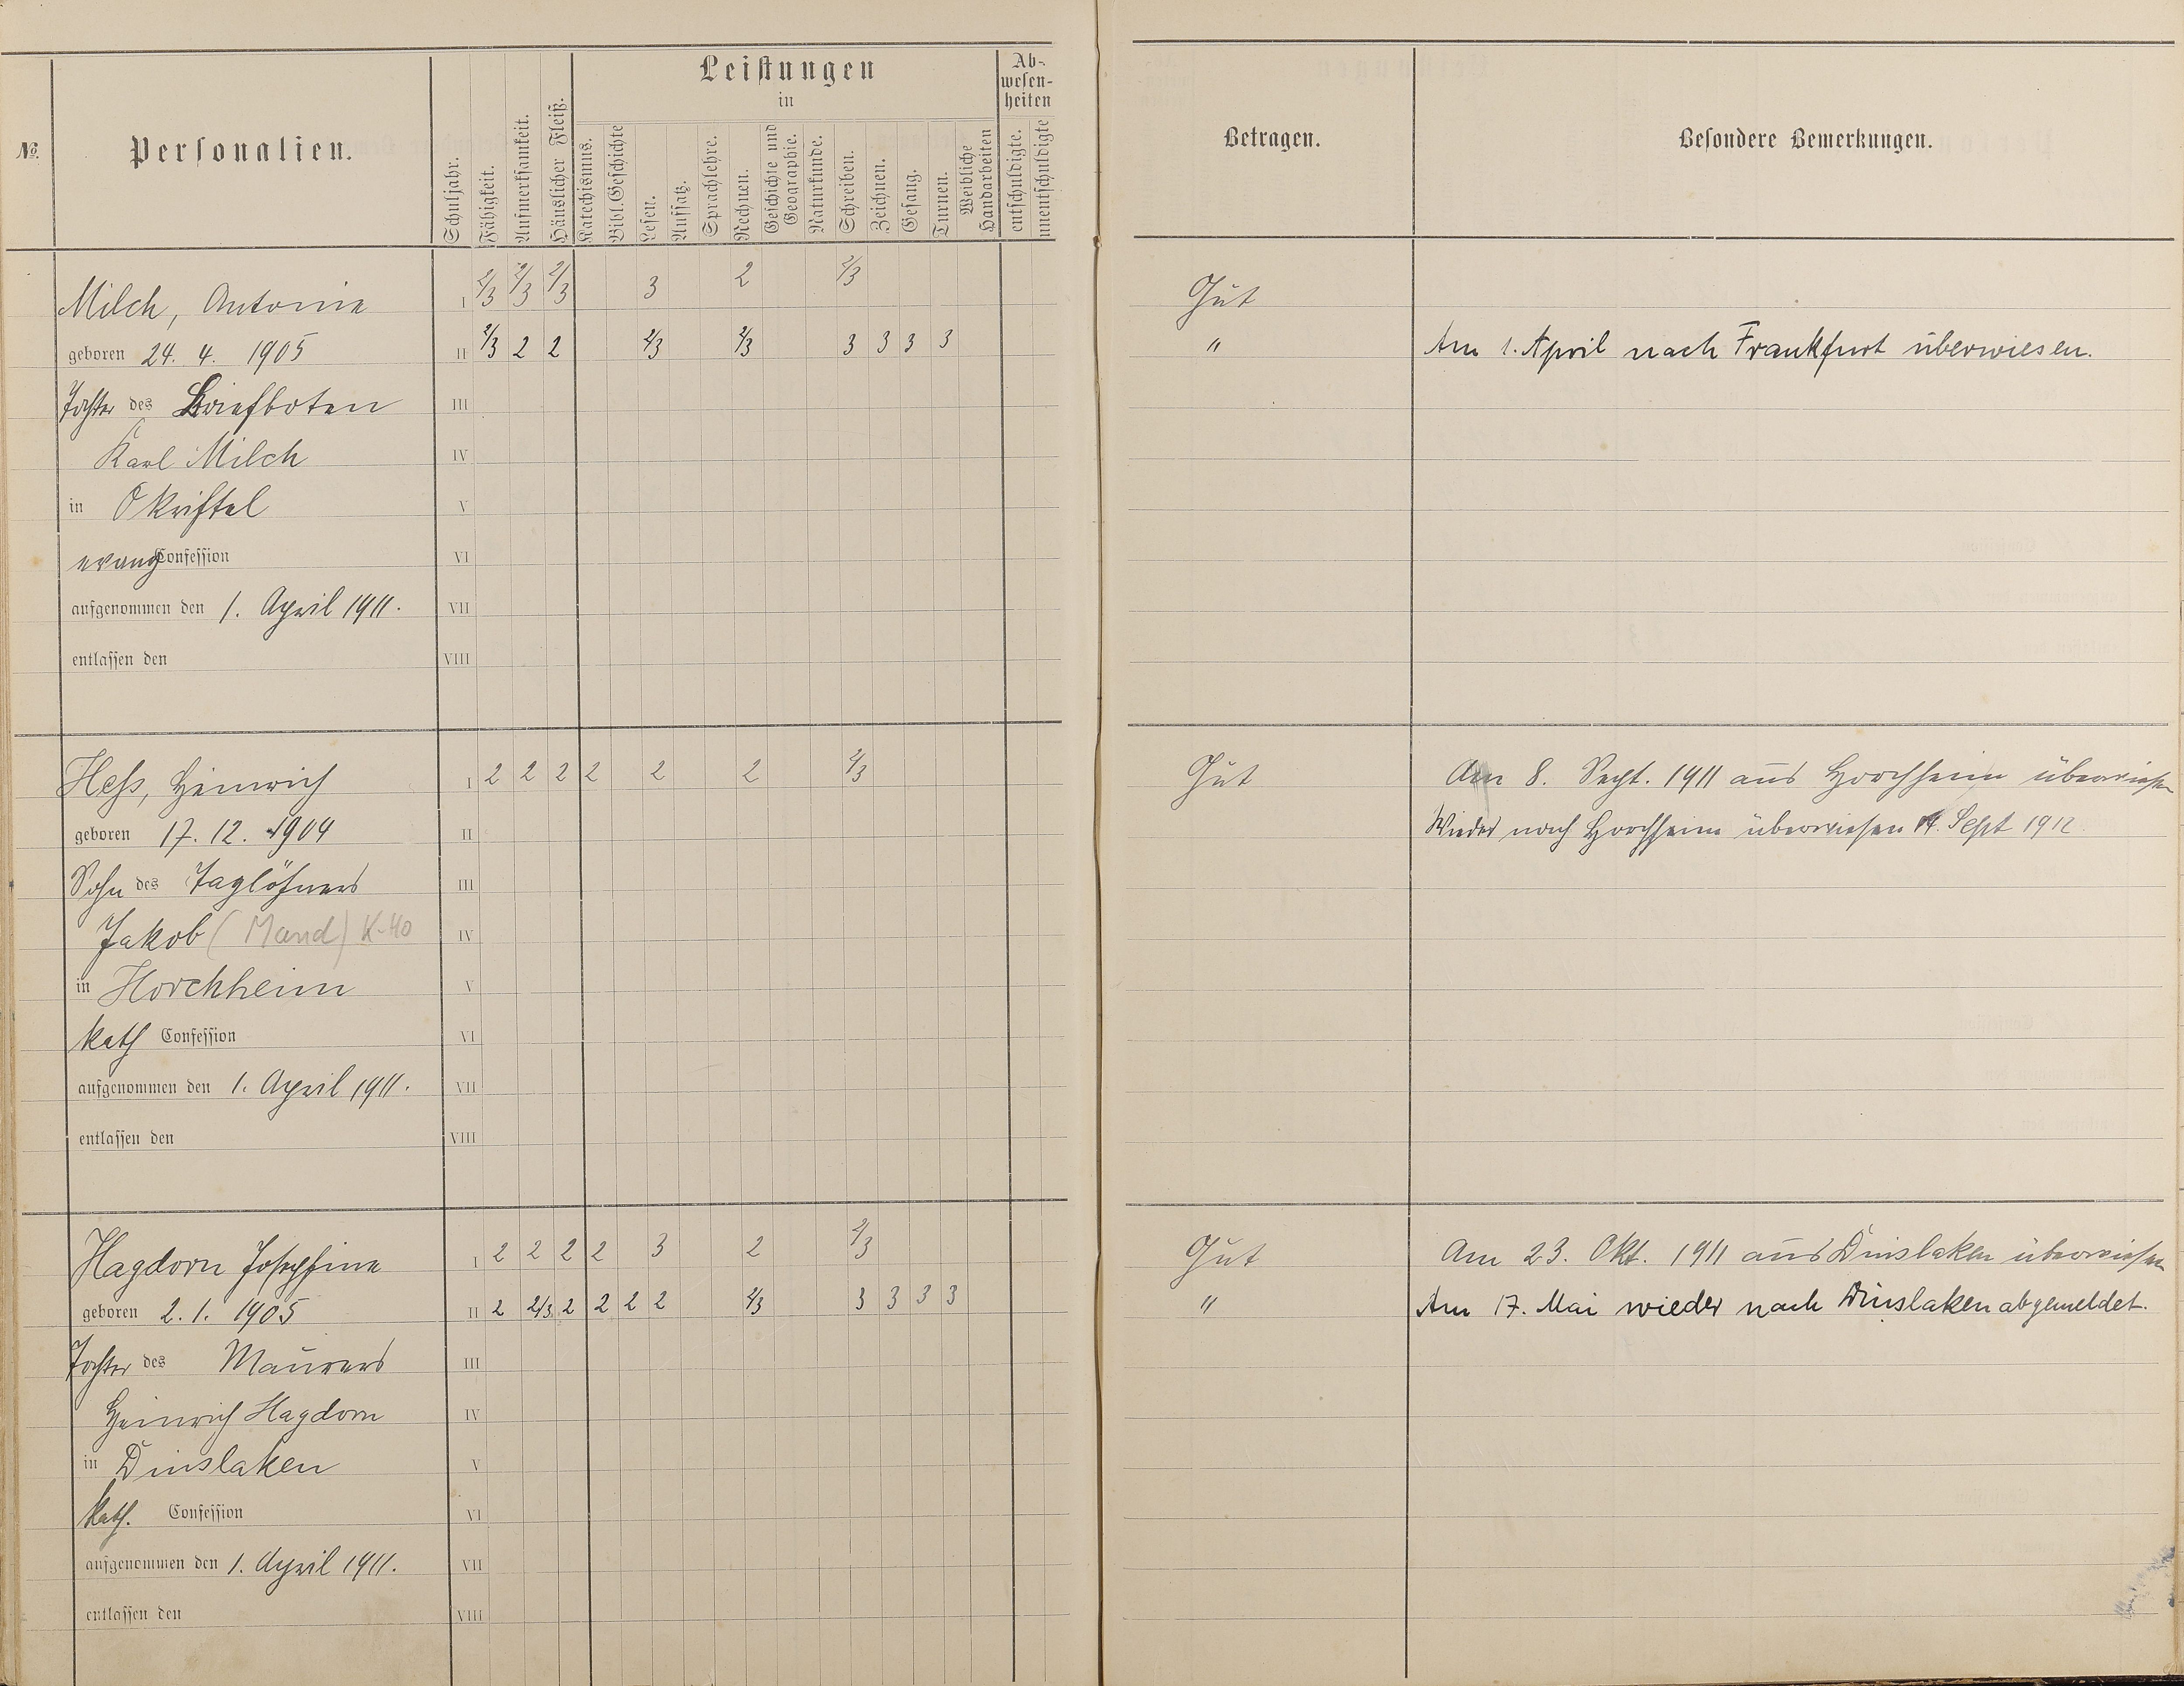 Leistungen
in
Ab-
wesen-
heiten
No.
Personalien.
Schuljahr.
Fähigkeit.
Aufmerksamkeit.
Häuslicher Fleiß.
Katechismus.
Bibl. Geschichte
Lesen.
Aufsatz.
Sprachlehre.
Rechnen.
Geschichte und
Geographie.
Naturkunde.
Schreiben.
Zeichnen.
Gesang.
Turnen.
Weibliche
Handarbeiten
entschuldigte.
unentschuldigte
Betragen.
Besondere Bemerkungen.
Milch, Antonie I 2/3 2/3 2/3 3 2 2/3 Gut
geboren 24. 4. 1905 II 2/3 2 2 2/3 2/3 3 3 3 3 " Am 1. April nach Frankfurt überwiesen.
Tochter des Briefboten III
Karl Milch IV
in Okriftel V
evang Confession VI
aufgenommen den 1. April 1911. VII
entlassen den VIII
Heß, Heinrich I 2 2 2 2 2 2 2/3 Gut Am 8. Sept. 1911 aus Horchheim überwiesen
geboren 17. 12. 1904 II Wieder nach Horchheim überwiesen 14. Sept 1912
Sohn des Taglöhners III
Jakob (Mand) K-40 IV
in Horchheim V
kath Confession VI
aufgenommen den 1. April 1911. VII
entlassen den VIII
Hagdorn Josephine I 2 2 2 2 3 2 2/3 Gut Am 23. Okt. 1911 aus Dinslaken überwiesen
geboren 2. 1. 1905 II 2 2/3 2 2 2 2 2/3 3 3 3 3 " Am 17. Mai wieder nach Dinslaken abgemeldet.
Tochter des Maurers III
Heinrich Hagdorn IV
in Dinslaken V
kath. Confession VI
aufgenommen den 1. April 1911. VII
entlassen den VIII